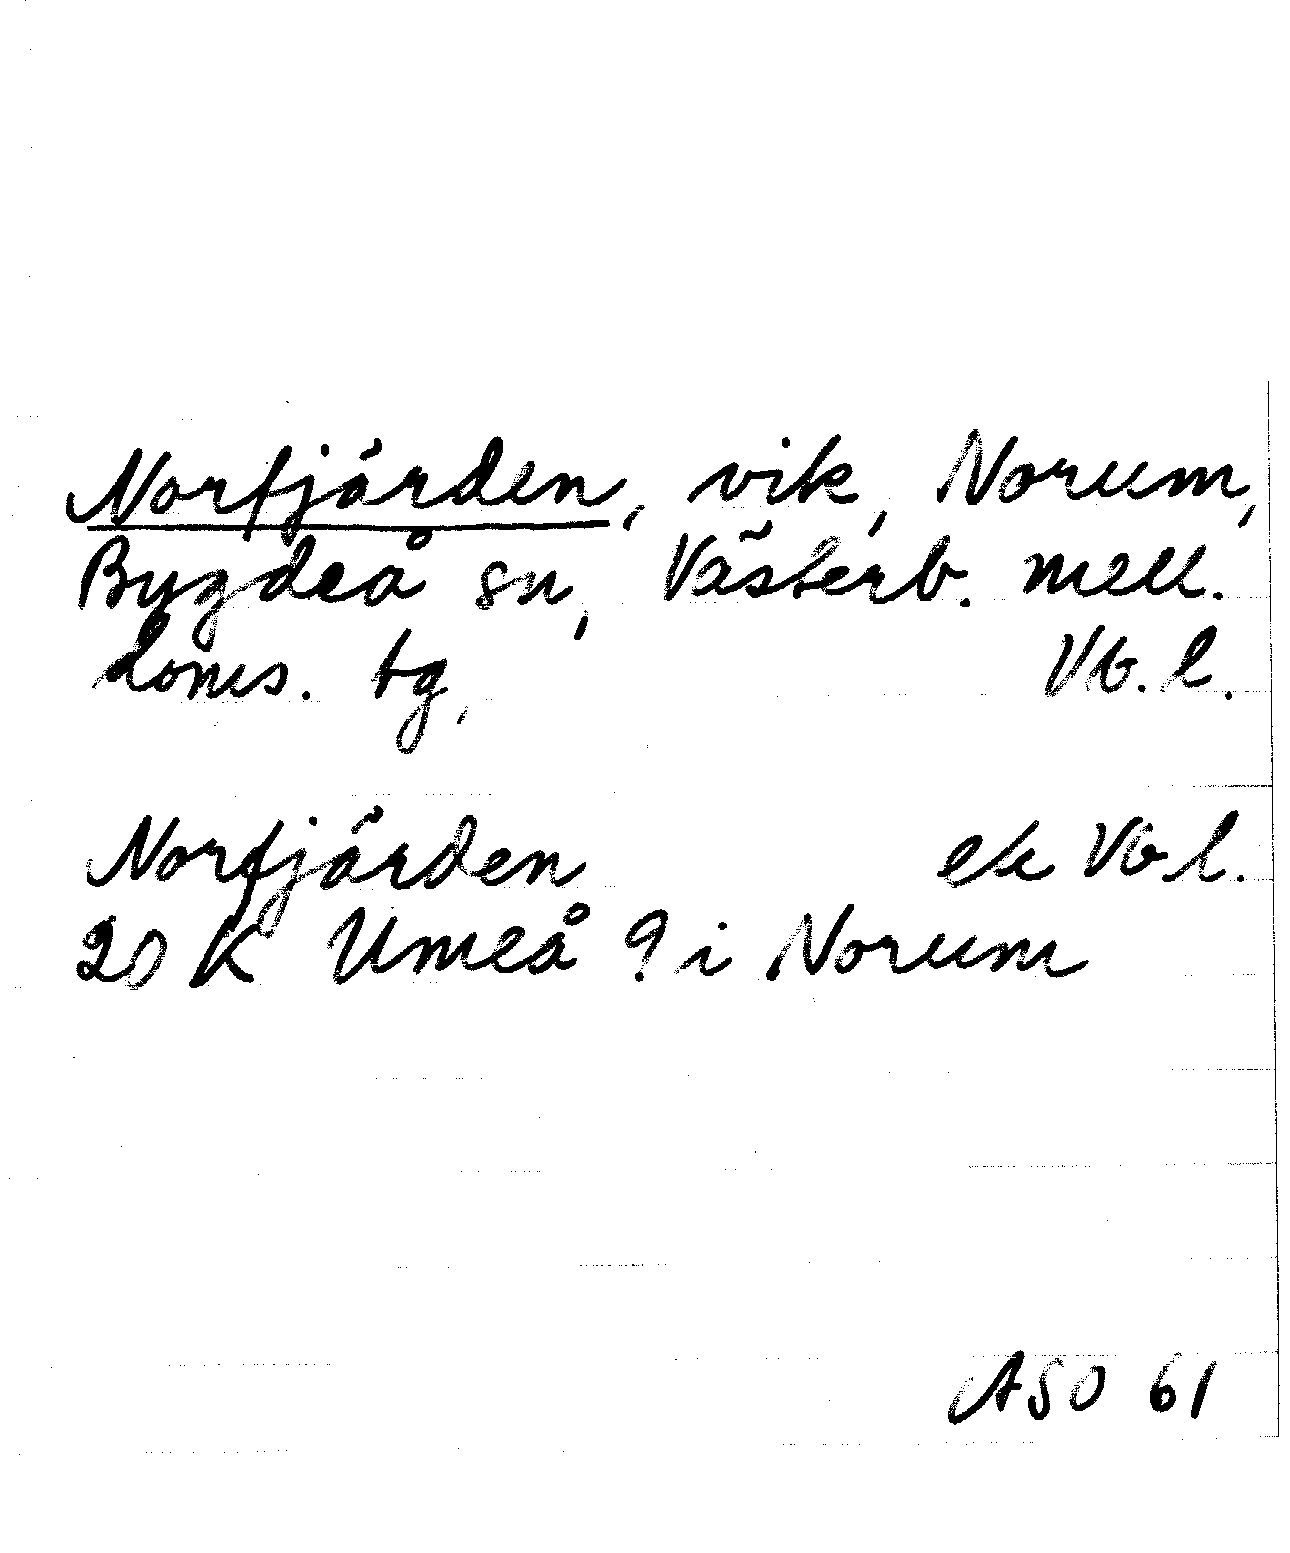 Norfjärden, vik, Norum,
Bygdeå sn, Västerb. mell.
doms. tg, Vb. l.
Norfjärden ek Vb l.
20 K Umeå 9 i Norum
ASO 61